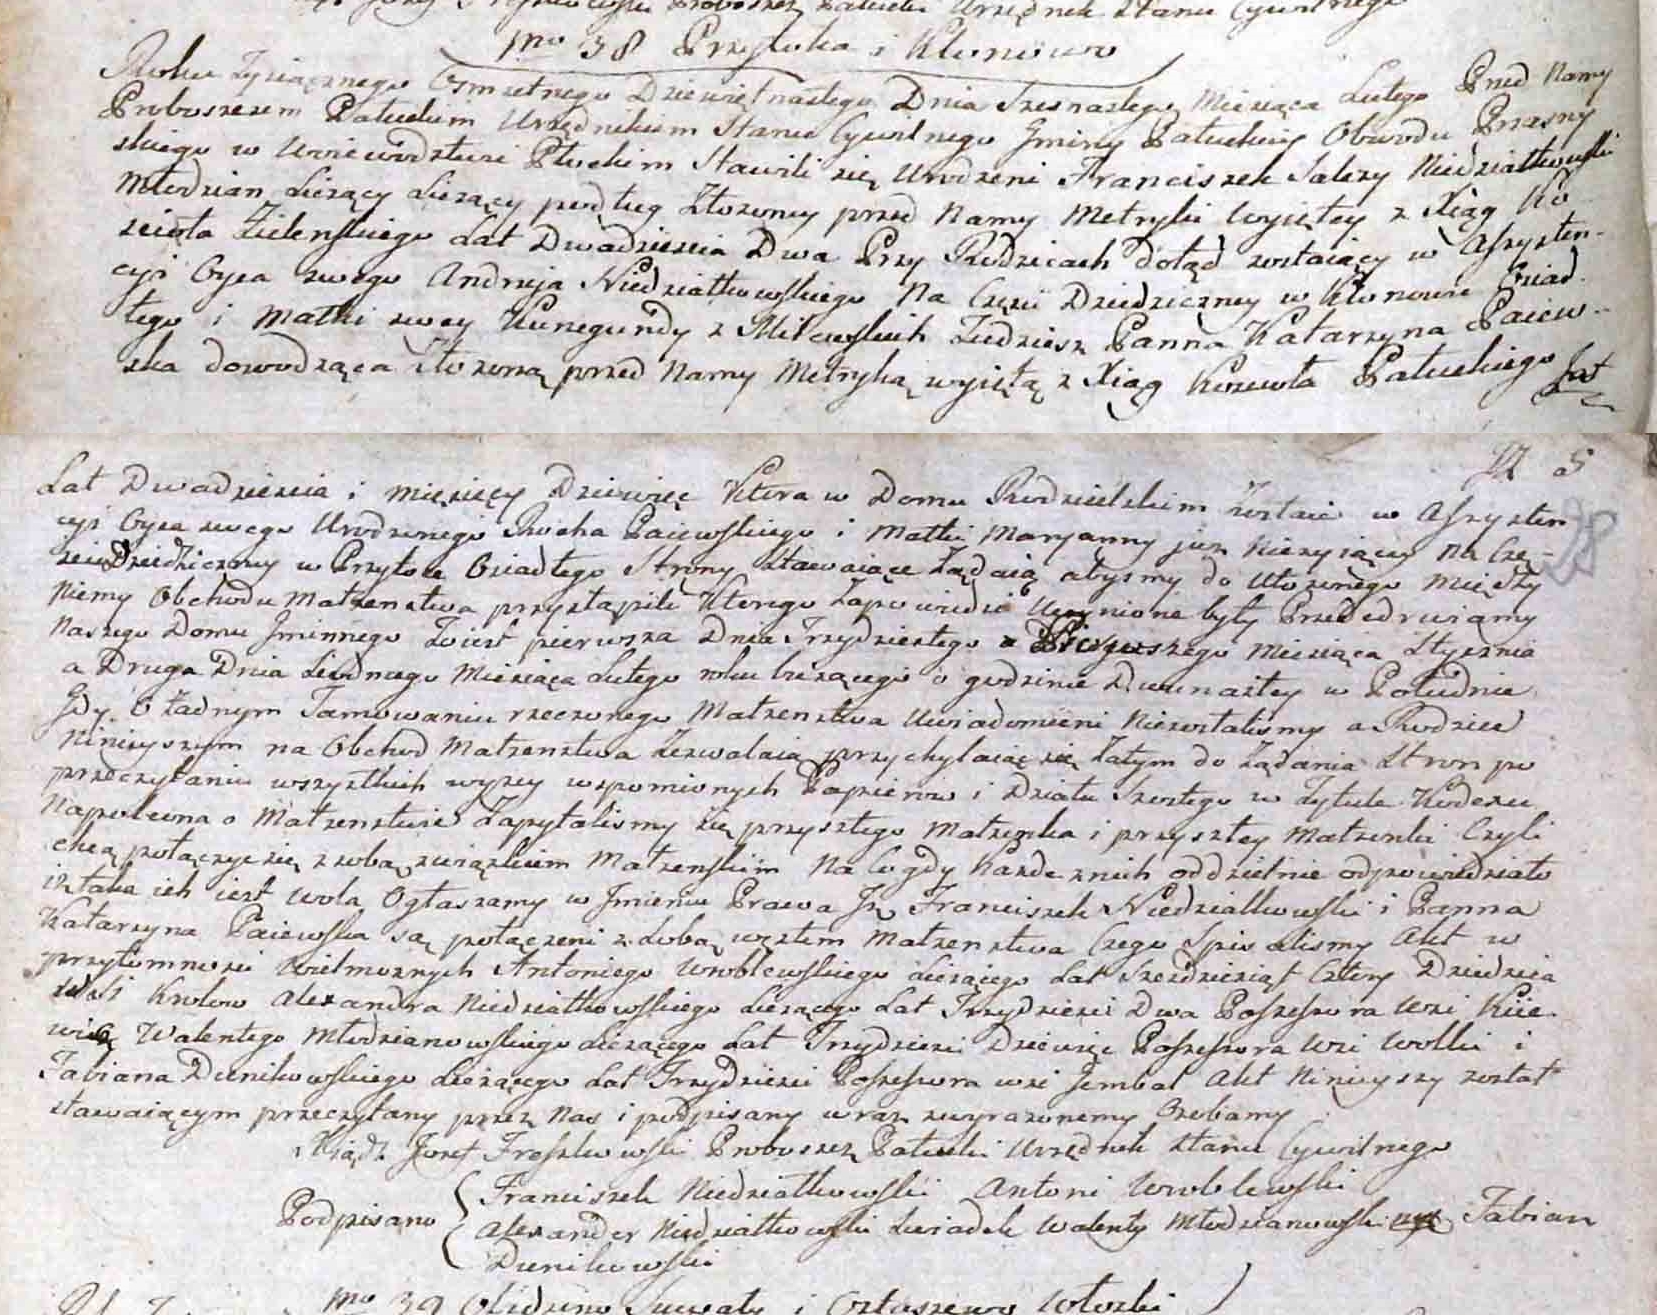 Proboszcz Pałucki Urzędnik Stanu Cywilnego
Nro 38 Przytuka i Klonowo
Roku Tysiącznego Osmsetnego Dziewiętnastego Dnia Szesnastego Miesiąca Lutego Przed Namy
Proboszczem Pałuckim Urzędnikiem Stanu Cywilnego Gminy Pałuckiey Obwodu Przasny
skiego w Woiewodztwie Płockim Stawili się Urodzeni Franciszek Salezy Niedziałkowski
Młodzian Liczący Liczący podług Złożoney przed Namy Metryki wyiętey z Xiąg Ko
scioła Zielenskiego Lat Dwadziescia Dwa Przy Rodzicach dotąd zostaiący w Assysten-
cyi Oyca swego Andrzeja Niedziałkowskiego Na Częsci Dziedziczney w Klonowie Osiad
łego i Matki swey Kunegundy z Milewskich Tudziesz Panna Katarzyna Paiew-
ska dowodząca Złożoną przed Namy Metryką wyiętą z Xiąg Koscioła Pałuckiego Lat
Lat Dwadziescia i Mięsięcy Dziewięc Ktora w Domu Rodzielskim Zostaie w Assysten
cyi Oyca swego Urodzonego Rocha Paiewskiego i Matki Maryanny jusz Nieżyiącey Na Czę-
28
sci Dziedziczney w Przytoce Osiadłego Strony Stawaiące Żądaią abysmy do Ułożonego Między
Niemy Obchodu Małżenstwa przystąpili Ktorego Zapowiedzi Uczynione były Przed drzwiamy
Naszego Domu Gminnego To iest pierwsza Dnia Trzydziestego Pierwszego Miesiąca Stycznia
a Druga Dnia Siodmego Miesiąca Lutego roku bieżącego o godzinie Dwunastey w Południe
Gdy O Żadnym Tamowaniu rzeczonego Małżenstwa Uwiadomieni Niezostalismy a Rodzice
Ninieyszym na Obchod Małżenstwa Zezwalaią przychylaiąc się Zatym do Żądania Stron po
przeczytaniu wszystkich wyzey wspomionych Papierow i Działu Szostego w Tytule Kodexu
Napoleona o Małżenstwie Zapytalismy się przyszłego Małżonka i przyszłey Małżonki Czyli
chcą połączyc się z sobą związkiem Małżenskim Na Co gdy Każde z nich oddzielnie odpowiedziało
iż taka ich iest wola Ogłaszamy w Jmieniu Prawa Jż Franciszek Niedziałkowski i Panna
Katarzyna Paiewska są połączeni z Sobą węzłem Małzenstwa Czego Spisalismy Akt w
przytomnosci Wielmoznych Antoniego Wroblewskiego Liczącego Lat Szesdziesiąt Cztery Dziedzica
wsi Krolow Alexandra Niedziałkowskiego Liczącego Lat Trzydziesci Dwa Possessora Wsi Kiie-
wic Walentego Młodzianowskiego Liczącego Lat Trzydziesci Dziewięc Possessora Wsi Wolki i
Fabiana Dunikowskiego Liczącego Lat Trzydziesci Possessora wsi Jembal Akt Ninieyszy został
stawaiącym przeczytany przez Nas i podpisany wraz zwyrazonemy Osobamy
Xiądz Jozef Proboszcz Pałucki Urzędnik Stanu Cywilnego
Podpisano Franciszek Niedziałkowski Antoni Wroblewski
Alexander Niedziałkowski Swiadek Walenty Młodzianowski Fabian
Dunikowski
Nro 39